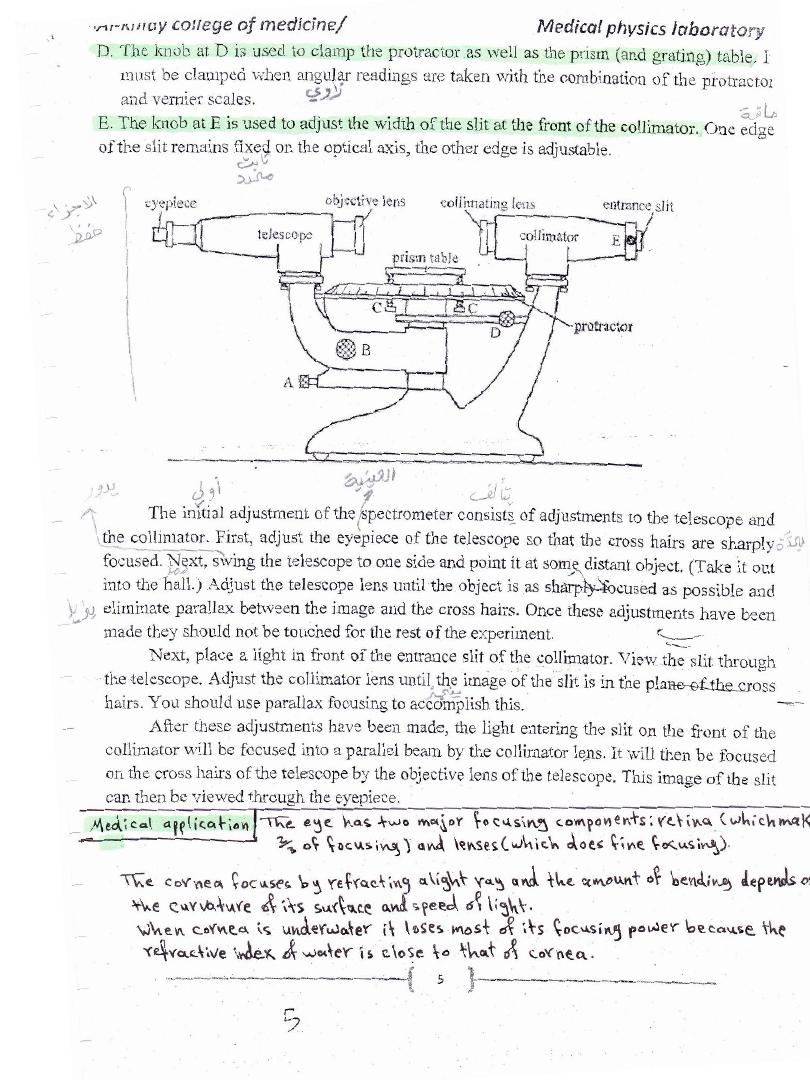 Al-Kindy college of medicine/ Medical physics laboratory
D. The knob at D is used to clamp the protractor as well as the prism (and grating) table. I
must be clamped when angular readings are taken with the combination of the protractor
and vernier scales.
زاوي
حافة
E. The knob at E is used to adjust the width of the slit at the front of the collimator. One edge
of the slit remains fixed on the optical axis, the other edge is adjustable.
ثابت
الاجزاء
حفظ
eyepiece
objective lens
collimating lens
entrance slit
telescope
collimator
E
prism table
C
C
D
protractor
B
A
يدور
أولي
يتألف
The initial adjustment of the spectrometer consists of adjustments to the telescope and
the collimator. First, adjust the eyepiece of the telescope so that the cross hairs are sharply
focused. Next, swing the telescope to one side and point it at some distant object. (Take it out
into the hall.) Adjust the telescope lens until the object is as sharply focused as possible and
eliminate parallax between the image and the cross hairs. Once these adjustments have been
made they should not be touched for the rest of the experiment.
Next, place a light in front of the entrance slit of the collimator. View the slit through
the telescope. Adjust the collimator lens until the image of the slit is in the plane of the cross
hairs. You should use parallax focusing to accomplish this.
After these adjustments have been made, the light entering the slit on the front of the
collimator will be focused into a parallel beam by the collimator lens. It will then be focused
on the cross hairs of the telescope by the objective lens of the telescope. This image of the slit
can then be viewed through the eyepiece.
Medical application The eye has two major focusing components: retina (which mak
2/3 of focusing) and lenses (which does fine focusing).
The cornea focuses by refracting alight ray and the amount of bending depends o
the curvature of its surface and speed of light.
when cornea is underwater it loses most of its focusing power because the
refractive index of water is close to that of cornea.
5
5